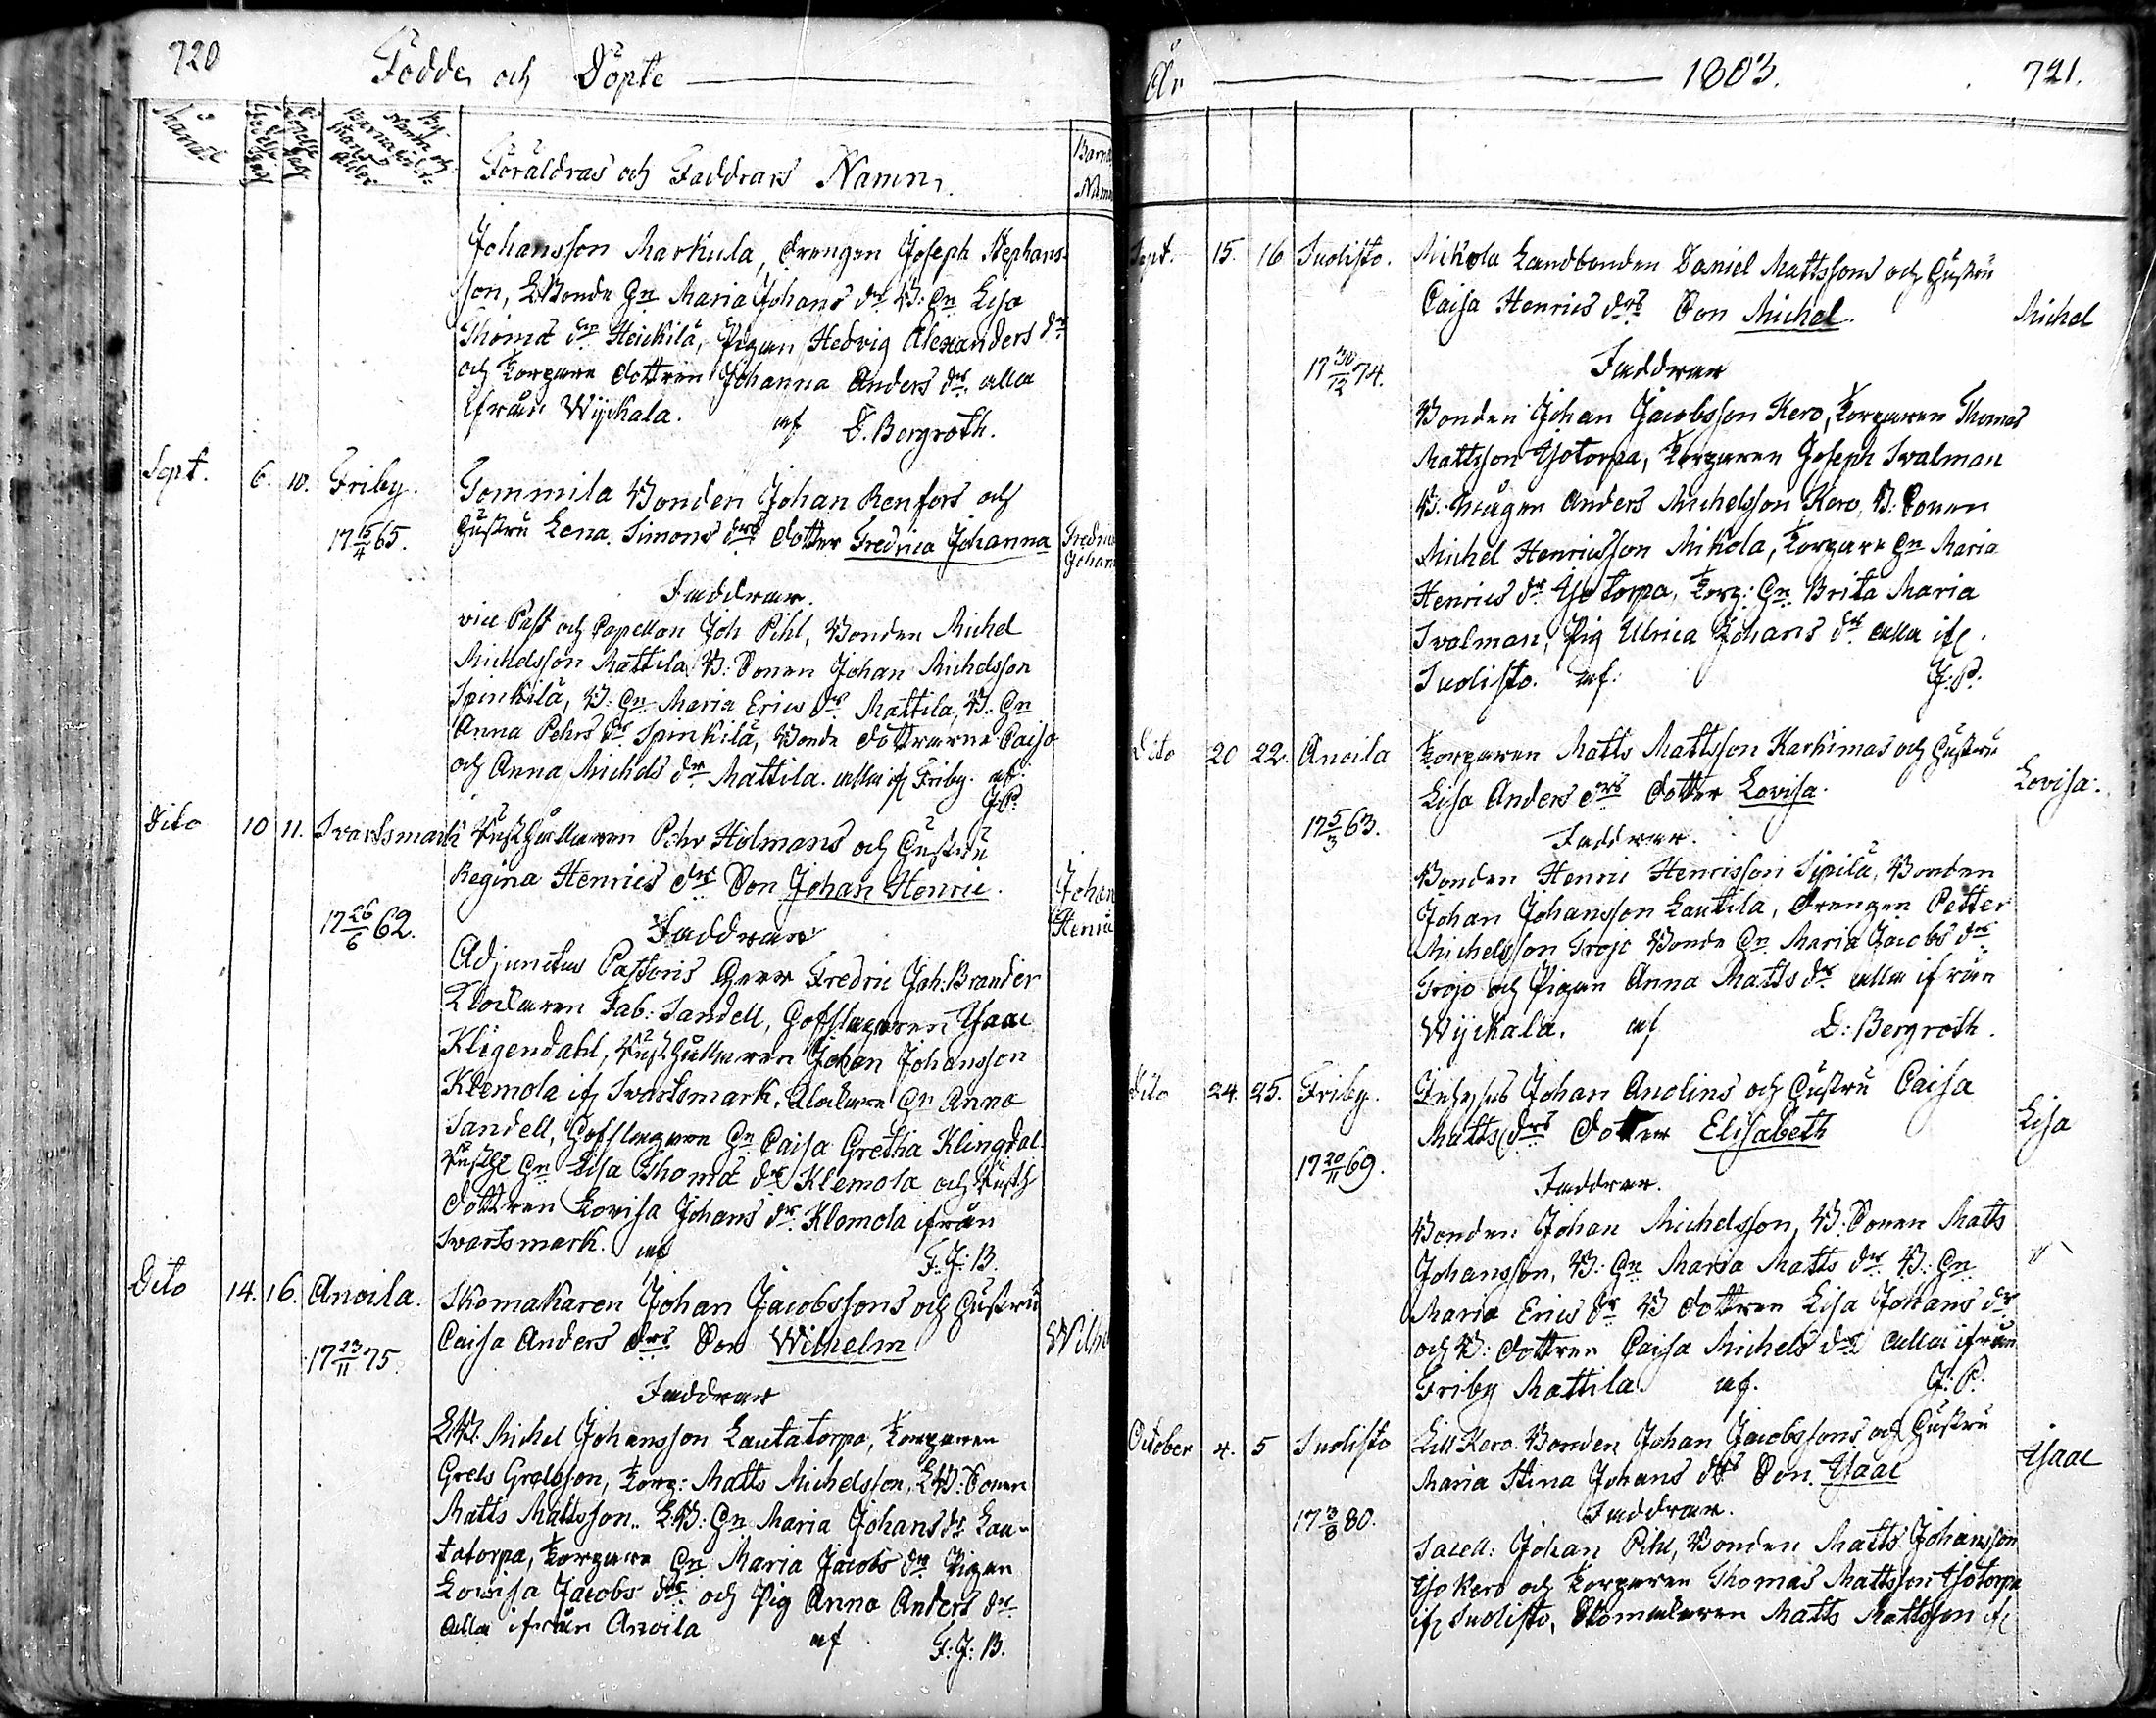 720
Födde och Döpte
Månad
Födelse dag
Döpelse dag
By namn och Barnaföderskans ålder
Föräldras och Faddrars Namn.
Barnets Namn
Johansson Markula, drengen Joseph Stephans-
son, LBonde Hn Maria Johans dr B: Hn Lisa
Thomæ dr Heickilä, Pigan Hedvig Alexanders dr
och Torpare dottren Johanna Anders dr alla
ifrån Wyckala. af D. Bergroth.
Sept. 6. 10. Friby. Tommila Bonden Johan Renfors och
17 15/4 65. Hustru Lena Simons drs dotter Fredrica Johanna
Fredrica
Johanna
Faddrar.
vice Past och Capellan Joh Pihl, Bonden Michel
Michelsson Mattila B: Sonen Johan Michelsson
Spinkilä, B: Hn Maria Erics dr Mattila, B: Hn
Anna Pehrs dr Spinkilä, Bonde döttrarne Caisa
och Anna Michels dr Mattila. alla if Friby. af.
J.P.
Dito 10 11. Svartsmark Rusthållaren Pehr Holmans och Hustru
Regina Henrics drs Son Johan Henric.
Johan
Henric
17 26/6 62.
Faddrar
Adjunctus Pastoris Herr Fredric Joh: Brander
Klockaren Fab: Sandell, Hofslagaren Isaac
Kligendahl, Rusthållaren Johan Johansson
Klemola if Svartsmark. Klockare Hn Anna
Sandell, Hofslagare Hn Caisa Gretha Klingdal
Rusth Hn Lisa Thomæ dr Klemola och Rusth
dottren Lovisa Johans dr Klemola ifrån
Svartsmark. af F: J: B.
Dito 14. 16. Anoila. Skomakaren Johan Jacobssons och Hustru
17 23/11 75. Caisa Anders drs Son Wilhelm
Faddrar
LB. Michel Johansson Lautatorpa, Torparen
Grels Grelsson, Torp: Matts Michelsson, LB: Sonen
Matts Mattsson. LB: Hn Maria Johans dr Lau-
tatorpa, Torpare Hn Maria Jacobs dr Pigan
Lovisa Jacobs dr och Pig Anna Anders dr
alla ifrån Anoila af F: J: B.
År 1803. 721.
Sept. 15. 16 Suolisto. Mikola Landbonden Daniel Mattssons och Hustru
Caisa Henrics drs Son Michel. Michel
17 30/12 74.
Faddrar
Bonden Johan Jacobsson Kero, Torparen Thomas
Mattsson Ysotorpa, Torparen Joseph Svalman
B. mågen Anders Michelsson Kero, B. Sonen
Michel Henricsson Mikola, Torpare Hn Maria
Henrics dr Yso torpa, Torp: Hn Brita Maria
Svalman, Pig Ulrica Johans dr alla if.
Suolisto. af: J: P:
Dito 20 22. Anoila Torparen Matts Mattsson Karhimas och Hustru
Lisa Anders drs dotter Lovisa. Lovisa:
17 5/3 63.
Faddrar.
Bonden Henric Henricsson Sipilä, Bonden
Johan Johansson Lautila, drengen Petter
Michelsson Trojo Bonde Hn Maria Jacobs dr
Trojo och Pigan Anna Matts dr alla ifrån
Wyckala. af D: Bergroth.
Dito 24. 25. Friby. Inhyses Johan Anolins och Hustru Caisa
Matts drs dotter Elisabeth Lisa
17 20/11 69.
Faddrar.
Bonden Johan Michelsson, B: Sonen Mats
Johansson, B: Hn Maria Matts dr B: Hn
Maria Erics dr B dottren Lisa Johans dr
och B: dottren Caisa Michels dr alla ifrån
Friby Mattila af. J: P.
October 4. 5 Suolisto Lill Kero Bonden Johan Jacobssons och Hustru
Maria Stina Johans drs Son. Ysaac Ysaac
17 3/8 80.
Faddrar.
Sacell: Johan Pihl, Bonden Matts Johansson
Yso Kero och Torparen Thomas Mattsson Ysotorpa
if Suolisto, Skomakaren Matts Mattsson if